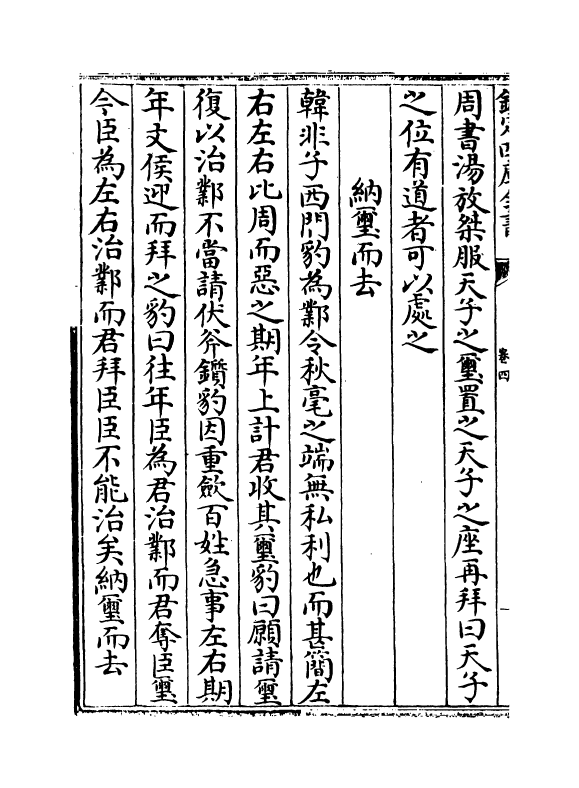 欽定四庫全書
卷四
周書湯放桀服天子之璽置之天子之座再拜曰天子
之位有道者可以處之
納璽而去
韓非子西門豹為鄴令秋毫之端無私利也而甚簡左
右左右比周而惡之期年上計君收其璽豹曰願請璽
復以治鄴不當請伏斧鑕豹因重斂百姓急事左右期
年文侯迎而拜之豹曰往年臣為君治鄴而君奪臣璽
今臣為左右治鄴而君拜臣臣不能治矣納璽而去